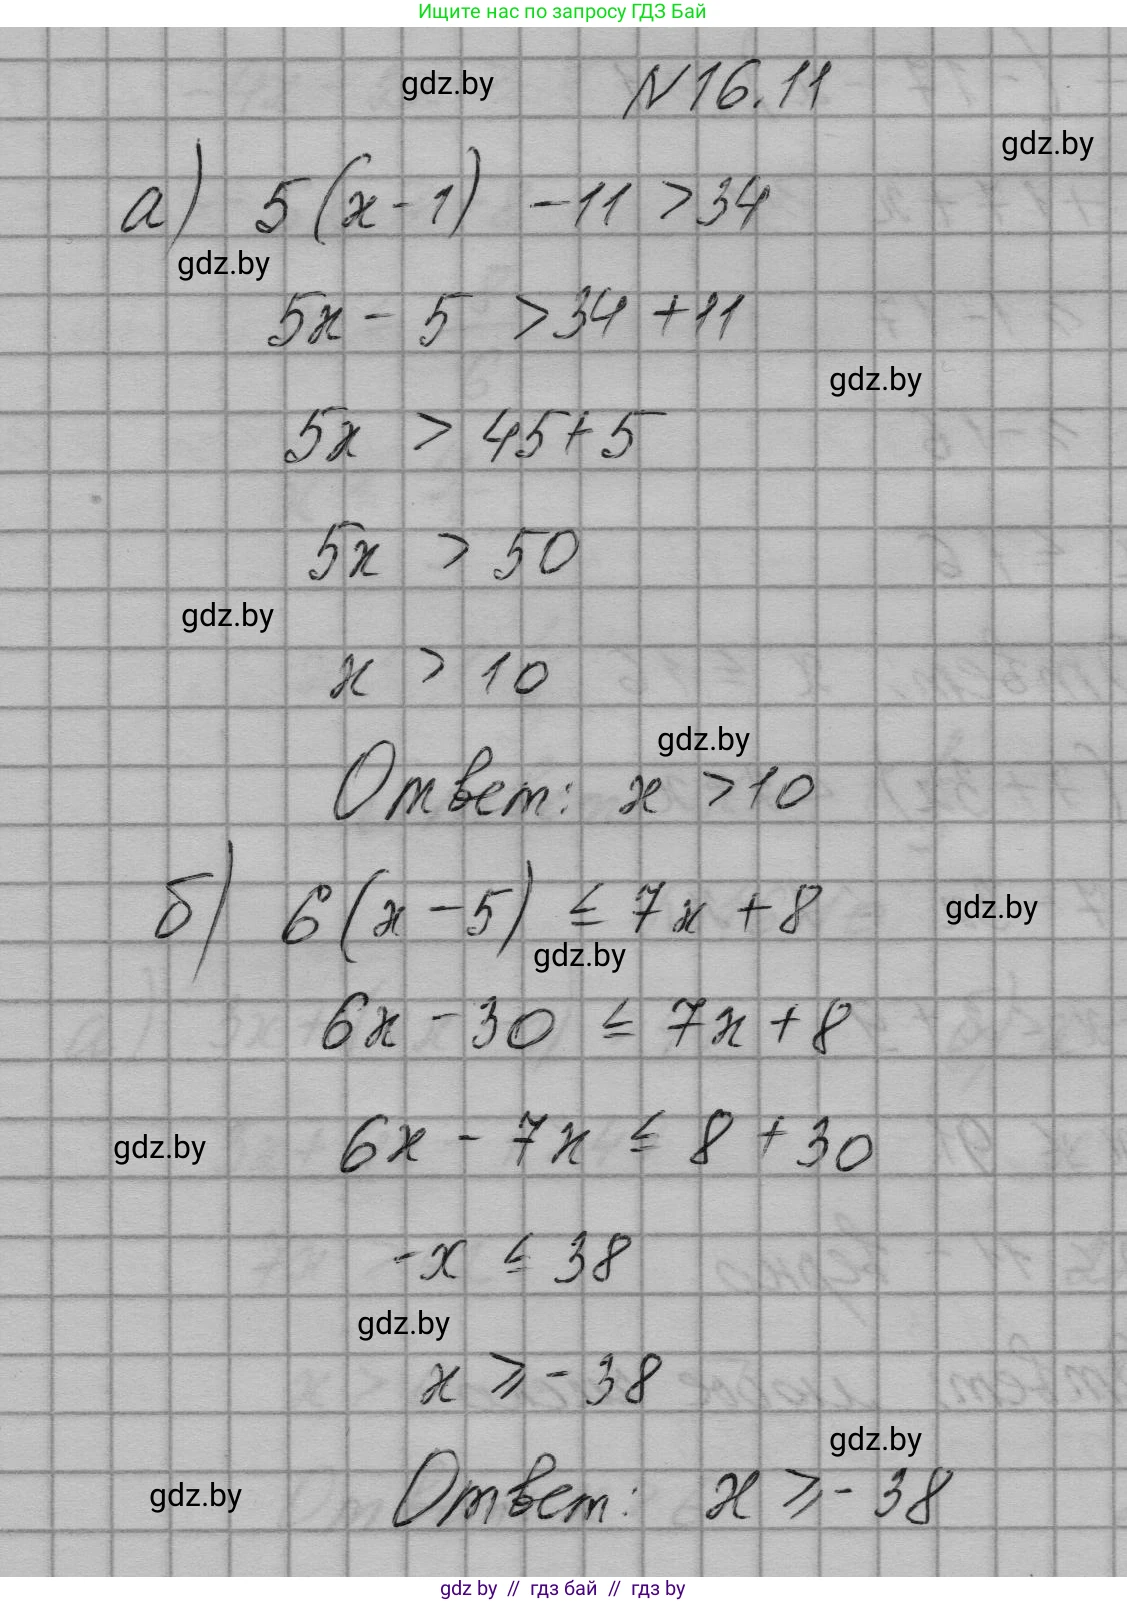 Ищите нас по запросу ГДЗ Бай
gdz.by
N 16.11
gdz.by
а) 5(x-1) -11 >34
gdz.by
5x - 5 >34 +11
gdz.by
5x > 45+5
5x > 50
gdz.by
x > 10
gdz.by
Ответ: x >10
б) 6(x-5) ≤ 7x +8
gdz.by
gdz.by
6x - 30 ≤ 7x +8
6x - 7x ≤ 8 + 30
gdz.by
-x ≤ 38
gdz.by
x ⩾ - 38
gdz.by
Ответ: x ⩾ - 38
gdz.by
gdz by // гдз бай // gdz by